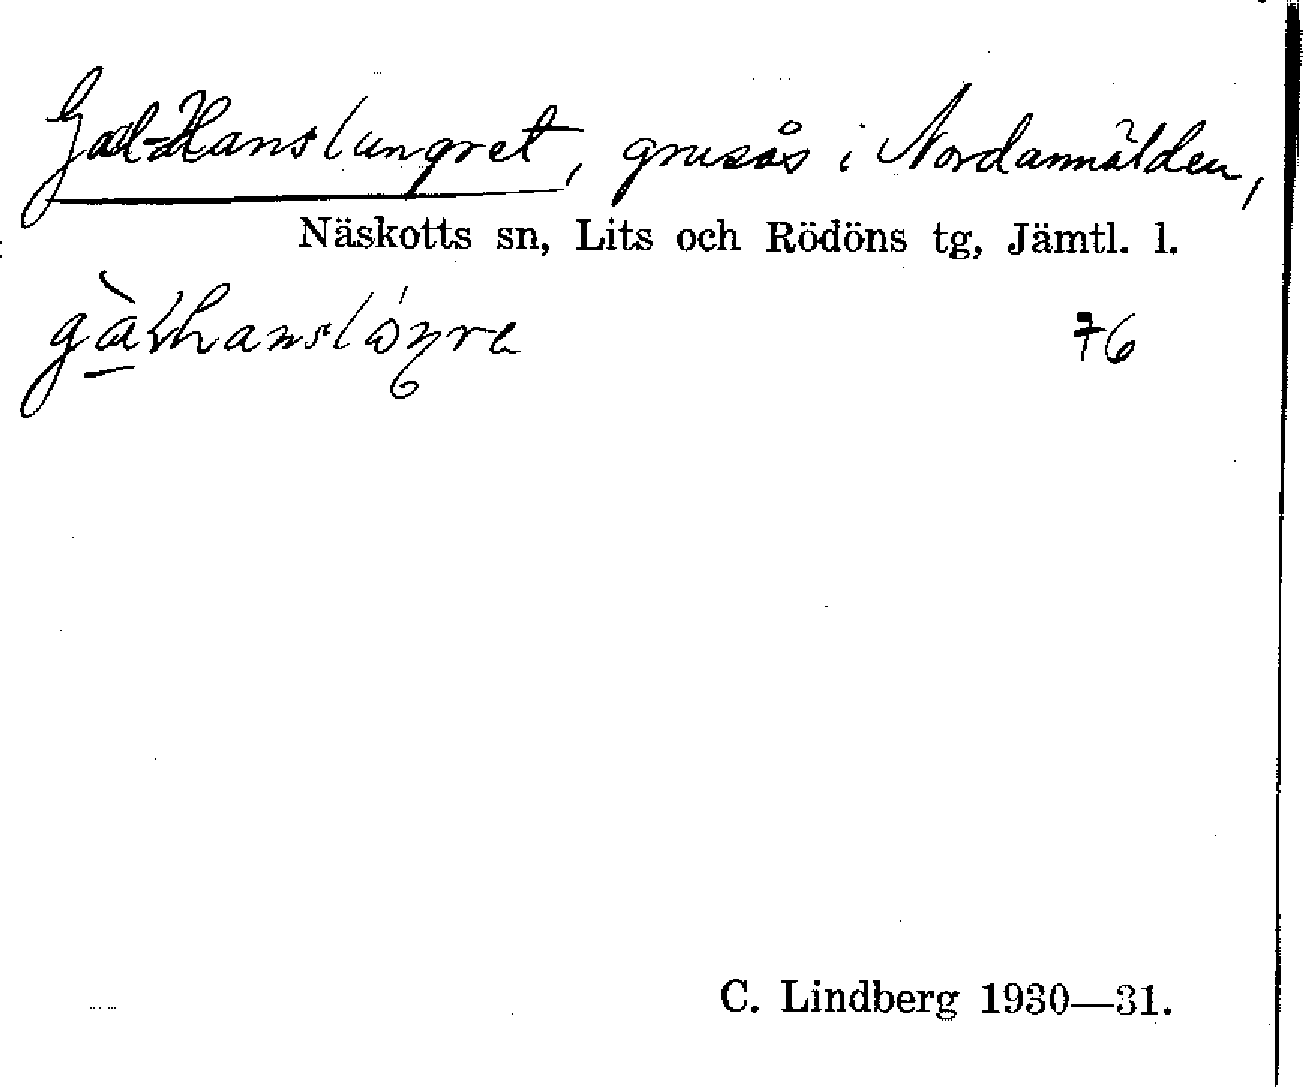 Gad-Hanslungret, grusås i Nordannälden,
Näskotts sn, Lits och Rödöns tg, Jämtl. l.
76
C. Lindberg 1930—31.